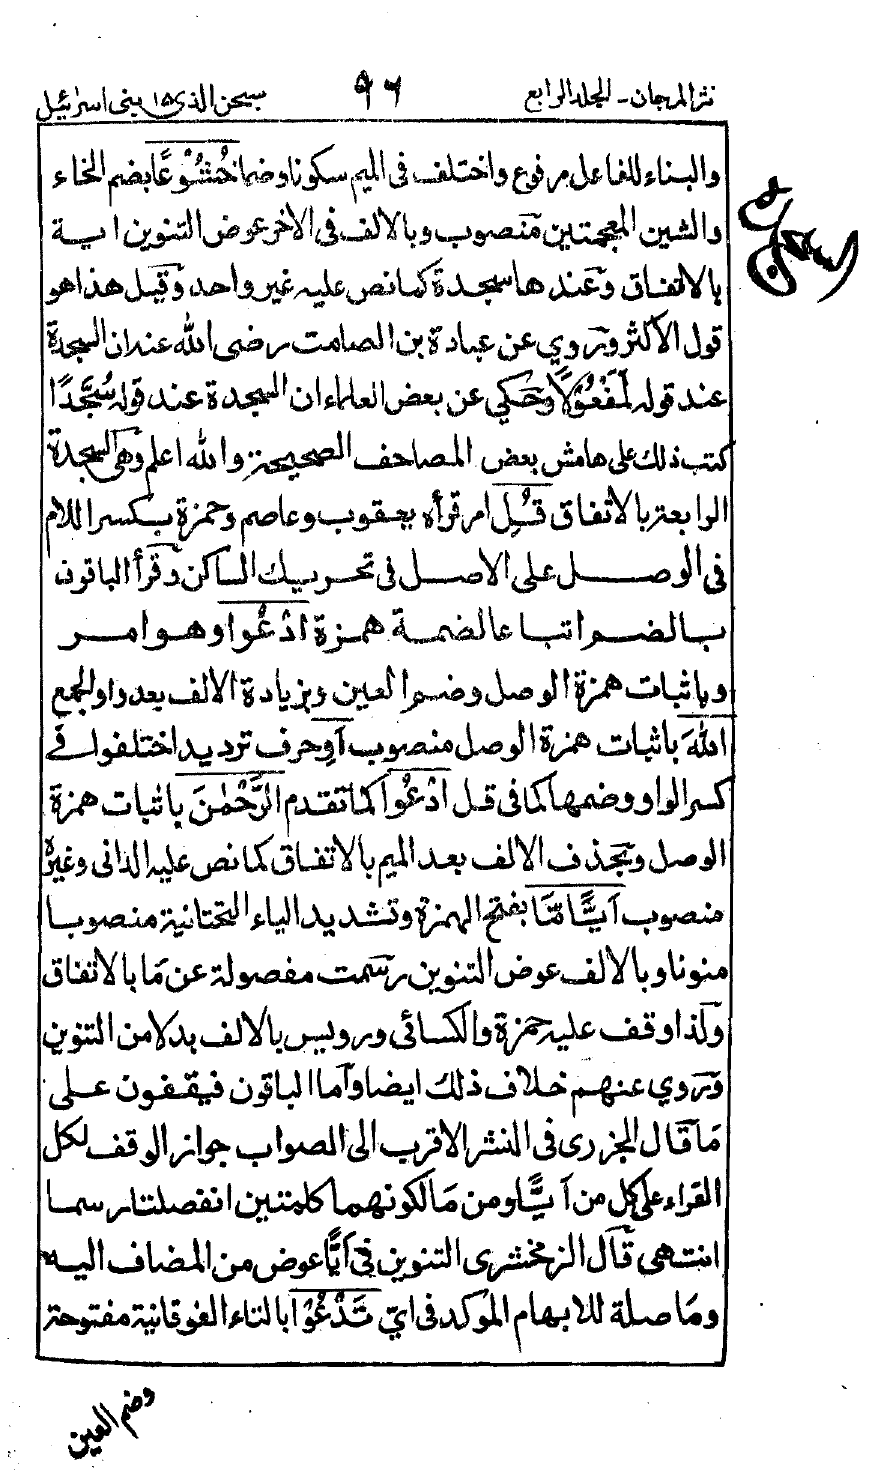 نثر المرجان - المجلد الرابع ٩٦ سبحن الذي ١٥ بنی اسرائیل
والبناء للفاعل مرفوع واختلف فی المیم سكونا وضما خُشُوْعًا بضم الخاء
والشین المعجمتین منصوب وبالالف فی الاخر عوض التنوین ایة
بالاتفاق وعندها سجدة كما نص علیه غیر واحد وقیل هذا هو
قول الاكثر وروي عن عبادة بن الصامت رضی الله عنه ان السجدة
عند قوله لَمَفْعُوْلًا وحكي عن بعض العلماء ان السجدة عند قوله سُجَّدًا
كتب ذلك علی هامش بعض المصاحف الصحیحة والله اعلم وهی السجدة
الرابعة بالاتفاق قُلِ امر قرأه یعقوب وعاصم وحمزة بكسر اللام
فی الوصل علی الاصل فی تحریك الساكن وقرأ الباقون
بالضم اتباعا لضمة همزة ادْعُوا وهو امر
وباثبات همزة الوصل وضم العین وبزیادة الالف بعد واو الجمع
اللهَ باثبات همزة الوصل منصوب اَوِ حرف تردید اختلفوا فی
كسر الواو وضمها كما فی قل ادْعُوا كما تقدم الرَّحْمٰنَ باثبات همزة
الوصل وبحذف الالف بعد المیم بالاتفاق كما نص علیه الدانی وغیره
منصوب اَیًّا مَّا بفتح الهمزة وتشدید الیاء التحتانیة منصوبا
منونا وبالالف عوض التنوین رسمت مفصولة عن مَا بالاتفاق
ولذا وقف علیه حمزة والكسائی ورویس بالالف بدلا من التنوین
وروي عنهم خلاف ذلك ایضا واما الباقون فیقفون علی
مَا قال الجزری فی النشر الاقرب الی الصواب جواز الوقف لكل
القراء علی كل من اَیًّا ومن مَا لكونهما كلمتین انفصلتا رسما
انتهی قال الزمخشری التنوین فی اَیًّا عوض من المضاف الیه
ومَا صلة للابهام المؤكد فی ايّ تَدْعُوْا بالتاء الفوقانیة مفتوحة
وضم العین